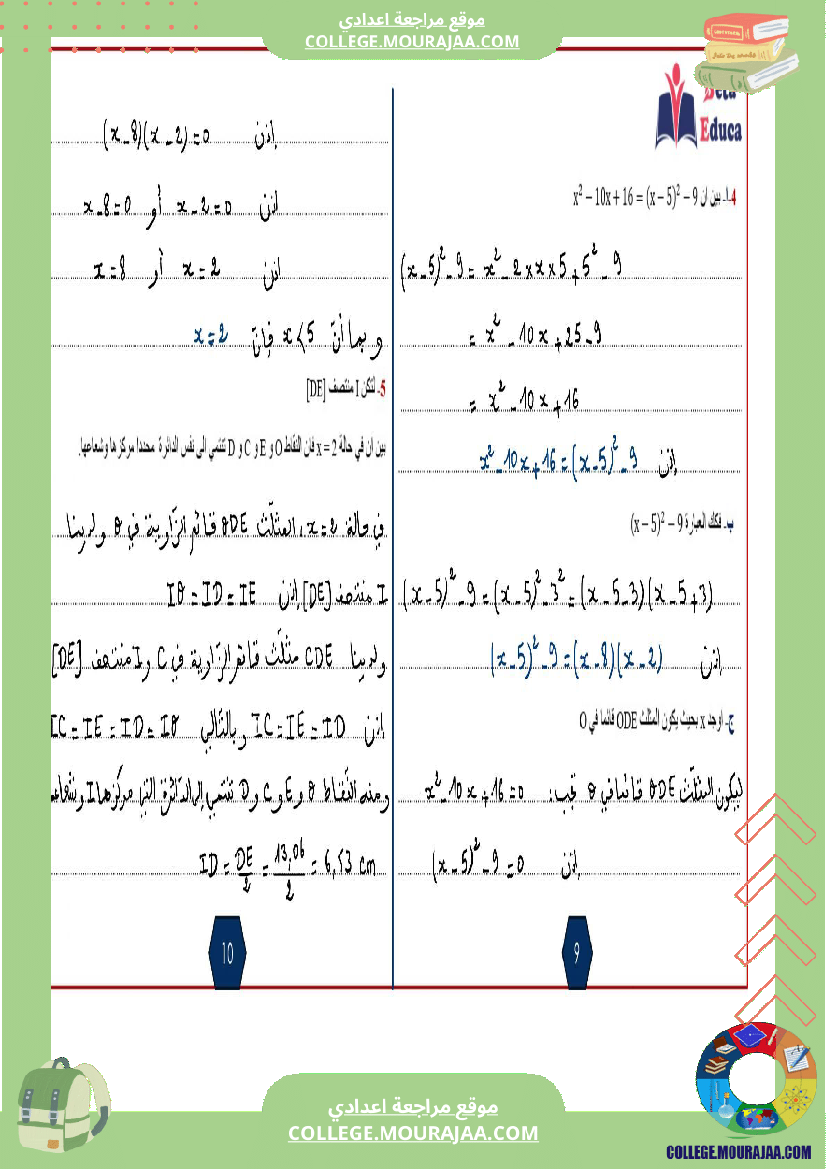 موقع مراجعة اعدادي
COLLEGE.MOURAJAA.COM
Beta
Educa
4.ا- بين ان x² – 10x + 16 = (x – 5)² – 9
(x-5)²-9 = x²-2×x×5+5²-9
= x²-10x+25-9
= x²-10x+16
إذن x²-10x+16=(x-5)²-9
ب- فكك العبارة (x – 5)² – 9
(x-5)²-9=(x-5)²-3²=(x-5-3)(x-5+3)
إذن (x-5)²-9=(x-8)(x-2)
ج- اوجد x بحيث يكون المثلث ODE قائما في O
ليكون المثلّث ODE قائما في O يجب: x²-10x+16=0
إذن (x-5)²-9=0
9
إذن (x-8)(x-2)=0
إذن x-2=0 أو x-8=0
إذن x=2 أو x=8
و بما أنّ x<5 فإنّ x=2
5- لتكن I منتصف [DE]
بين ان في حالة x = 2 فان النقاط O و E و C و D تنتمي الى نفس الدائرة محددا مركزها وشعاعها.
في حالة x=2، المثلّث ODE قائم الزّاوية في O ولدينا
I منتصف [DE] إذن IO=ID=IE
ولدينا CDE مثلّث قائم الزّاوية في C و I منتصف [DE]
إذن IC=IE=ID وبالتّالي IC=IE=ID=IO
ومنه النّقاط O و E و C و D تنتمي إلى الدّائرة التي مركزها I وشعاعها
ID = DE/2 = 13,06/2 = 6,53 cm
10
موقع مراجعة اعدادي
COLLEGE.MOURAJAA.COM
COLLEGE.MOURAJAA.COM